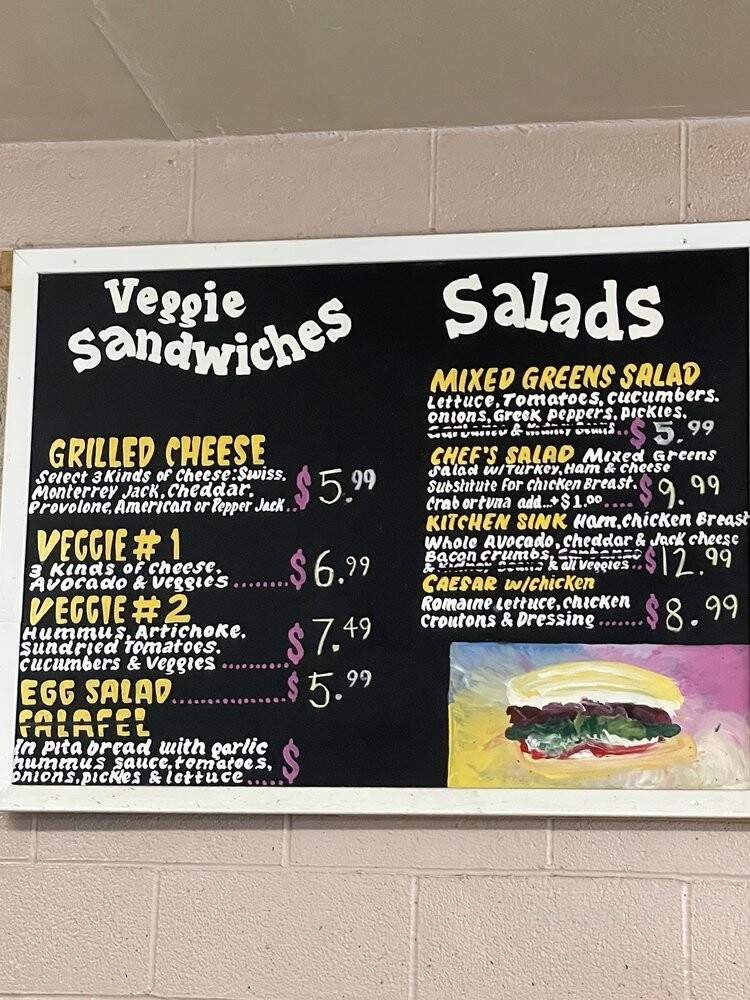 Veggie
Sandwiches
GRILLED CHEESE
Select 3 Kinds of Cheese: Swiss,
Monterrey Jack, Cheddar,
Provolone, American or Pepper Jack.. $5.99
VEGGIE #1
3 Kinds of cheese,
Avocado & Veggies ....... $6.99
VEGGIE #2
Hummus, Artichoke,
Sundried Tomatoes,
cucumbers & Veggies ........ $7.49
EGG SALAD.............. $5.99
FALAFEL
In pita bread with garlic
hummus sauce, tomatoes,
onions, pickles & lettuce ..... $
Salads
MIXED GREENS SALAD
Lettuce, Tomatoes, cucumbers.
onions, Greek Peppers, pickles,
& .. $5.99
CHEF'S SALAD Mixed Greens
Salad w/Turkey, Ham & cheese
Substitute for chicken Breast,
Crab or tuna add..+$1.00 ..... $9.99
KITCHEN SINK Ham, chicken Breast
Whole Avocado, Cheddar & Jack cheese
Bacon crumbs,
& all veggies.. $12.99
CAESAR w/chicken
Romaine lettuce, chicken
Croutons & Dressing ....... $8.99